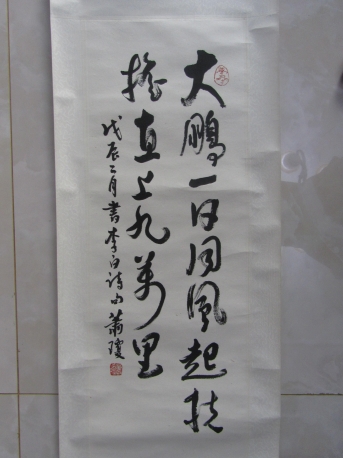 大鹏一日同风起扶
摇直上九万里
戊辰二月书李白诗句萧琼